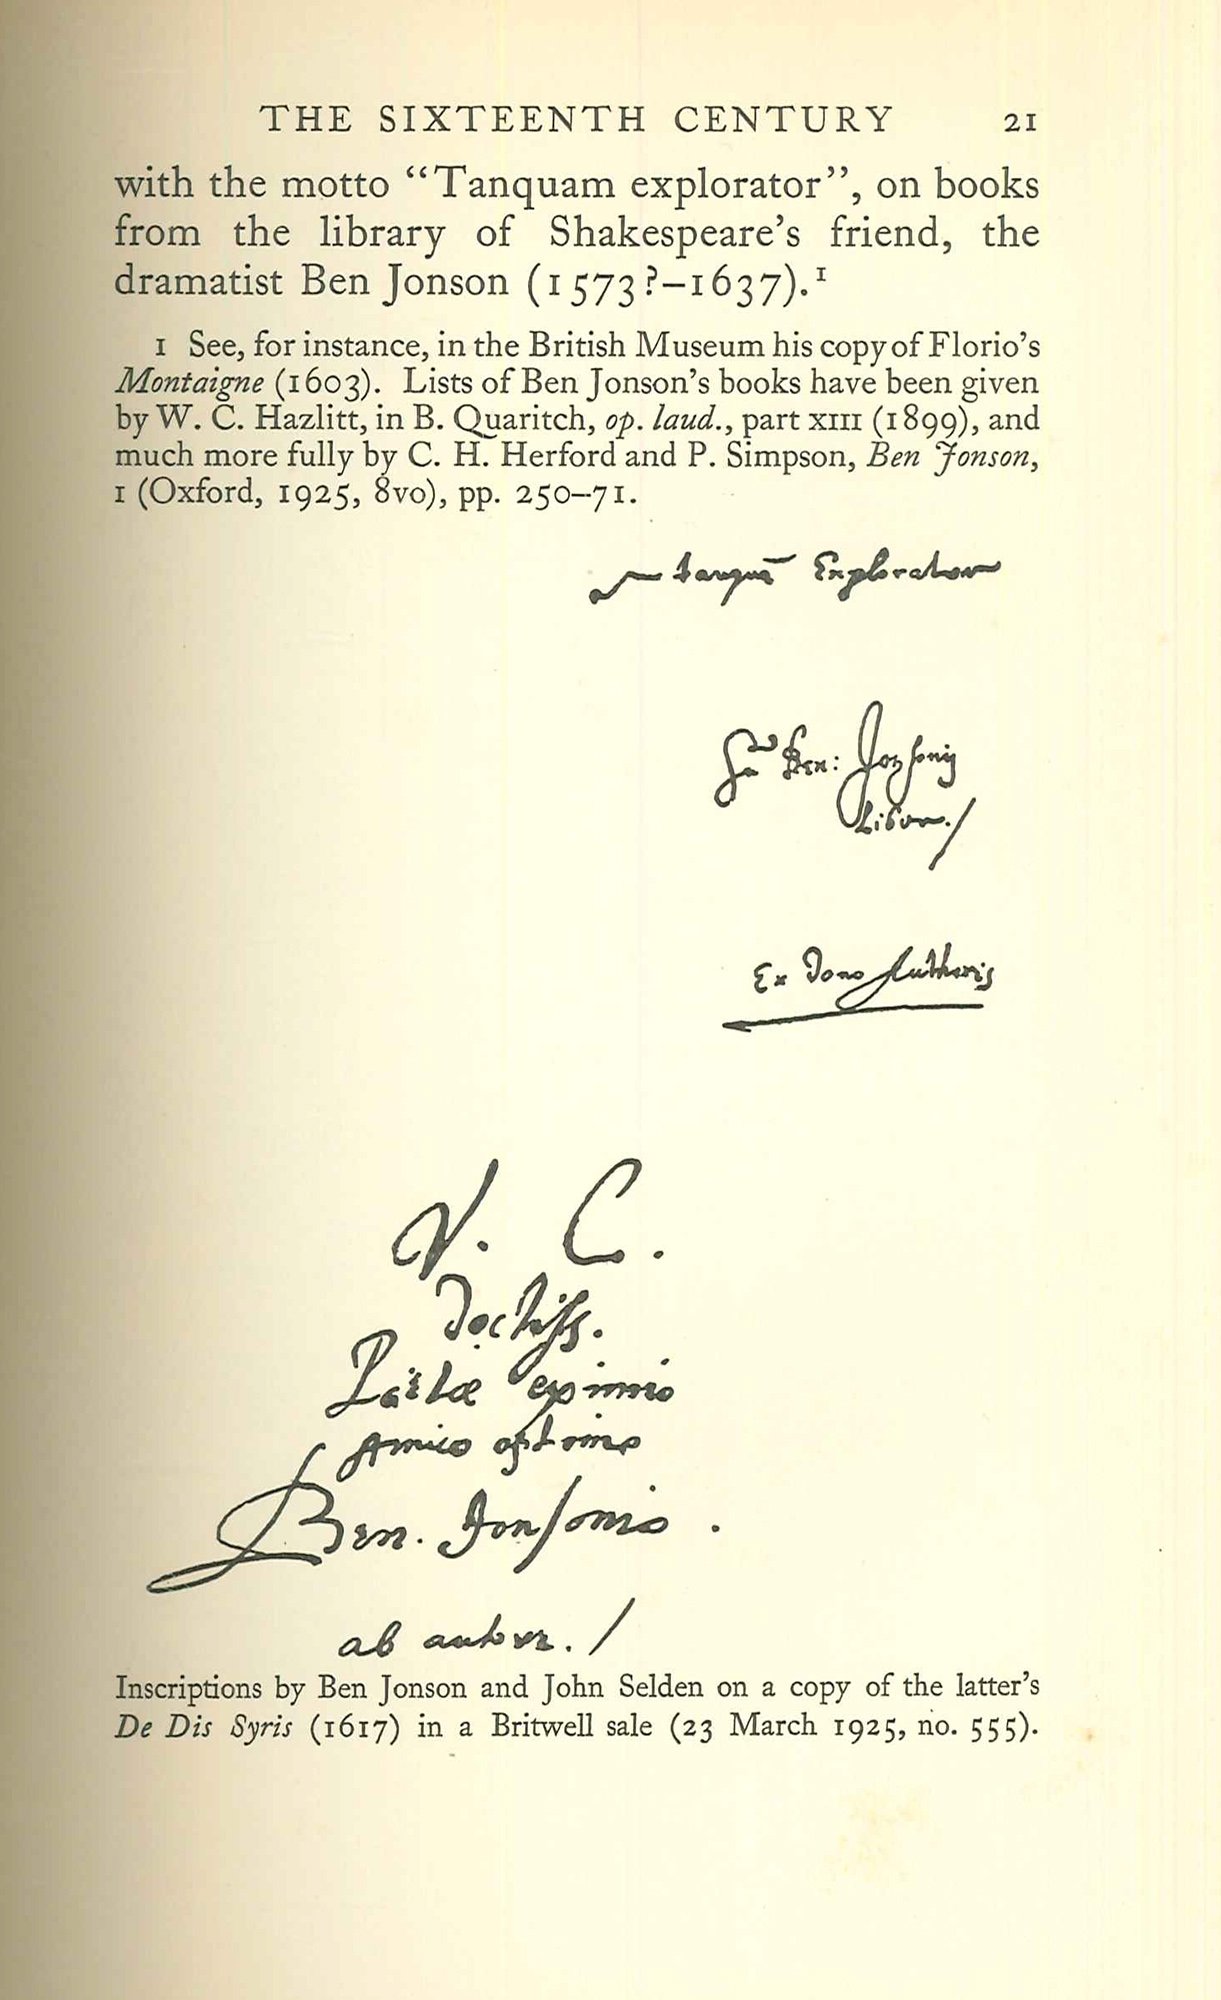 THE SIXTEENTH CENTURY 21
with the motto “Tanquam explorator”, on books
from the library of Shakespeare’s friend, the
dramatist Ben Jonson (1573?–1637).¹
1 See, for instance, in the British Museum his copy of Florio’s
Montaigne (1603). Lists of Ben Jonson’s books have been given
by W. C. Hazlitt, in B. Quaritch, op. laud., part XIII (1899), and
much more fully by C. H. Herford and P. Simpson, Ben Jonson,
I (Oxford, 1925, 8vo), pp. 250–71.
tanquā Explorator
Su͞ Ben: Jonsonij
Liber./
Ex dono Authoris
V. C.
doctiss.
Poëtæ eximio
Amico optimo
Ben. Jonsonio.
ab autore./
Inscriptions by Ben Jonson and John Selden on a copy of the latter’s
De Dis Syris (1617) in a Britwell sale (23 March 1925, no. 555).